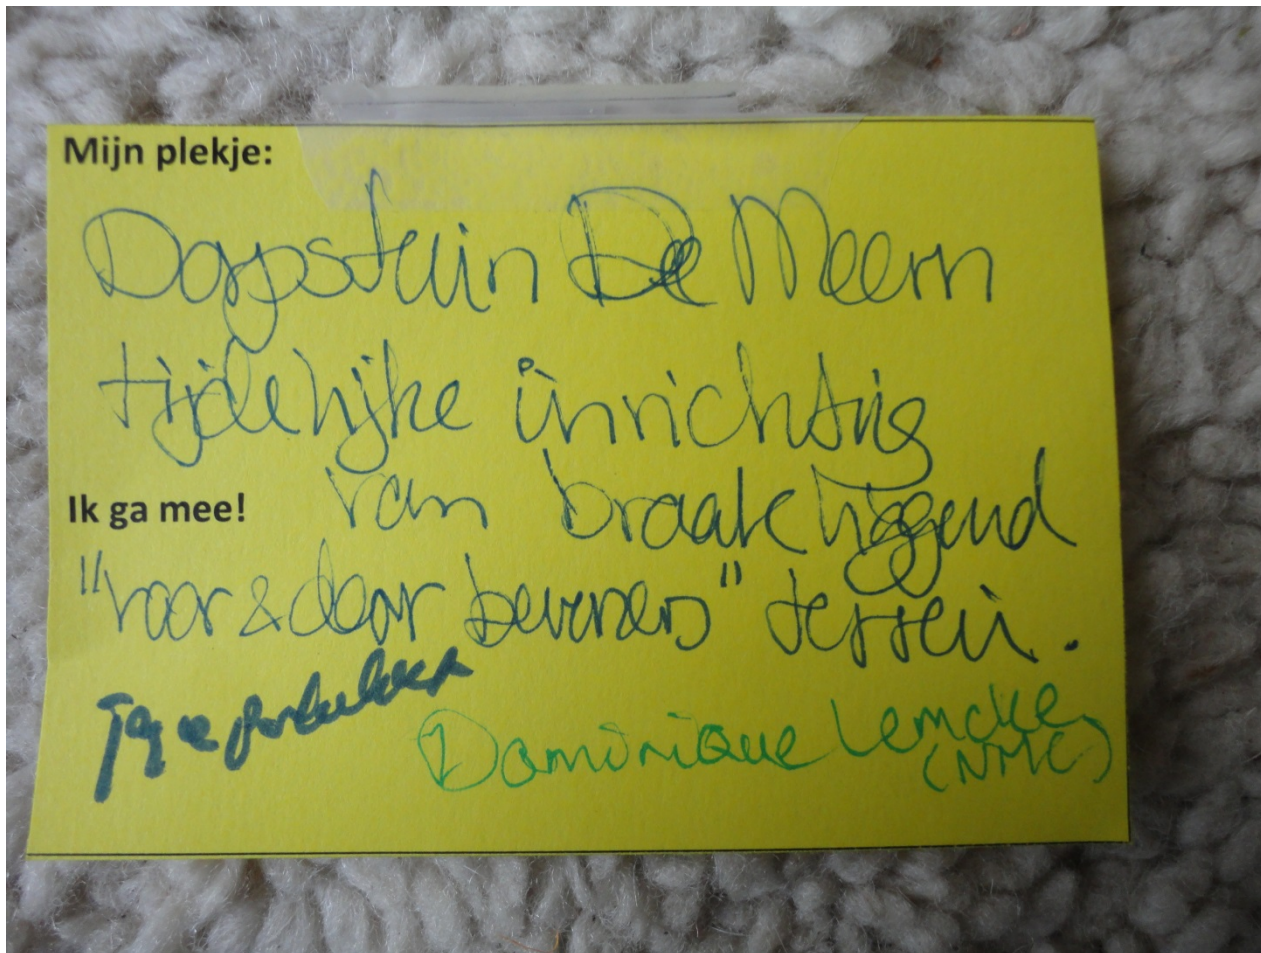 Mijn plekje:
Dorpstuin De Meern
tijdelijke inrichting
van braakliggend
Ik ga mee!
"voor & door bewoners" terrein.
Dominique Lemcke
(NMC)